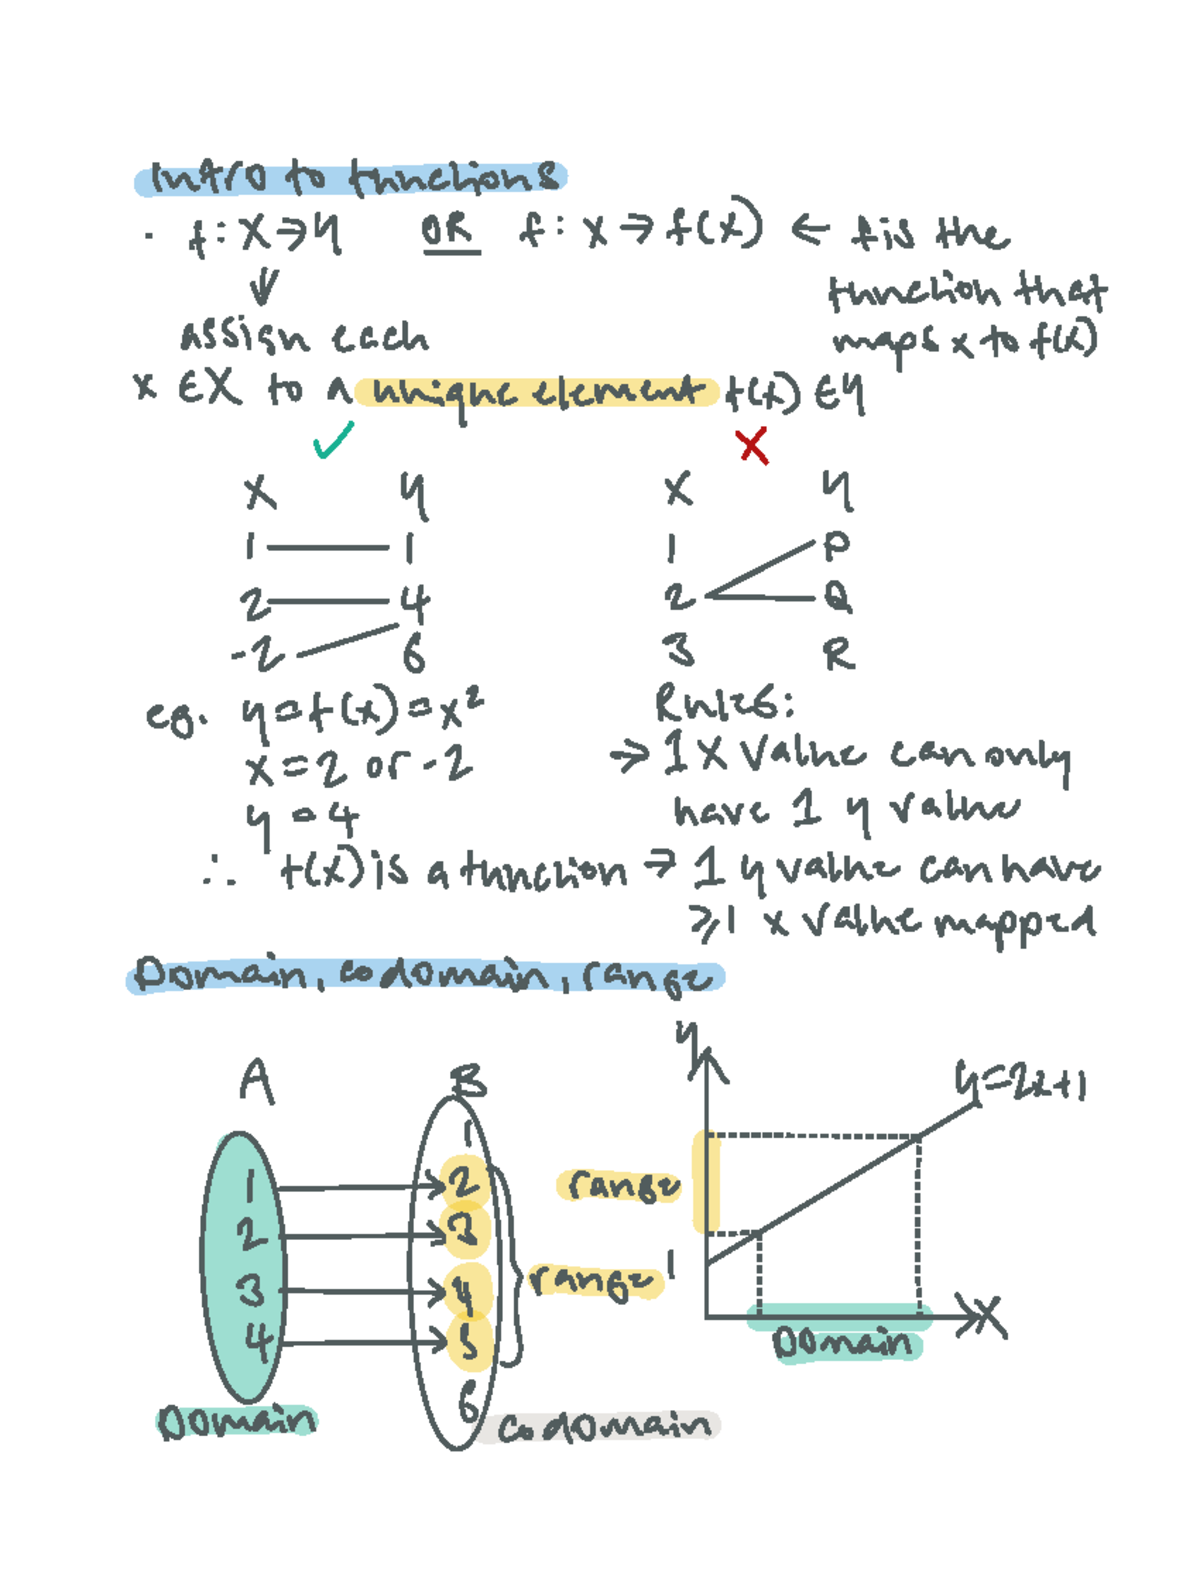 Intro to functions
· f: X → Y OR f: x → f(x) ← f is the
function that
assign each maps x to f(x)
x ∈ X to a unique element f(x) ∈ Y
✓ ✗
X Y X Y
1 1 1 P
2 4 2 Q
-2 6 3 R
eg. y = f(x) = x² Rules:
x = 2 or -2 → 1 x value can only
y = 4 have 1 y value
∴ f(x) is a function → 1 y value can have
≥1 x value mapped
Domain, codomain, range
y
A B y=2x+1
1
1 2 range
2 3
3 4 range 1
4 5 x
Domain
6
Domain codomain